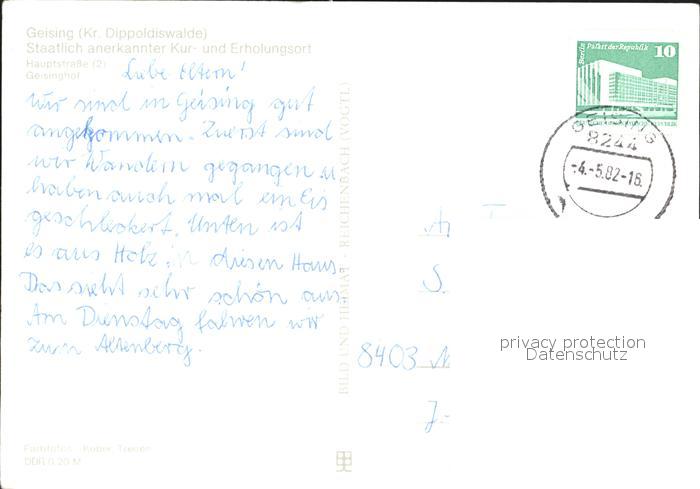 Geising (Kr. Dippoldiswalde)
Staatlich anerkannter Kur- und Erholungsort
Hauptstraße (2)
Geisinghof
Liebe Eltern!
Wir sind in Geising gut
angekommen. Zuerst sind
wir Wandern gegangen u
haben auch mal ein Eis
geschleckert. Unten ist
es aus Holz in diesen Haus.
Das sieht sehr schön aus.
Am Dienstag fahren wir
zum Altenberg.
Farbfotos: Kober, Treuen
DDR 0,20 M
BILD UND HEIMAT · REICHENBACH (VOGTL)
Berlin Palast der Republik 10
GEISING
8244
-4.-5.82-16
An
S.
8403
privacy protection
Datenschutz